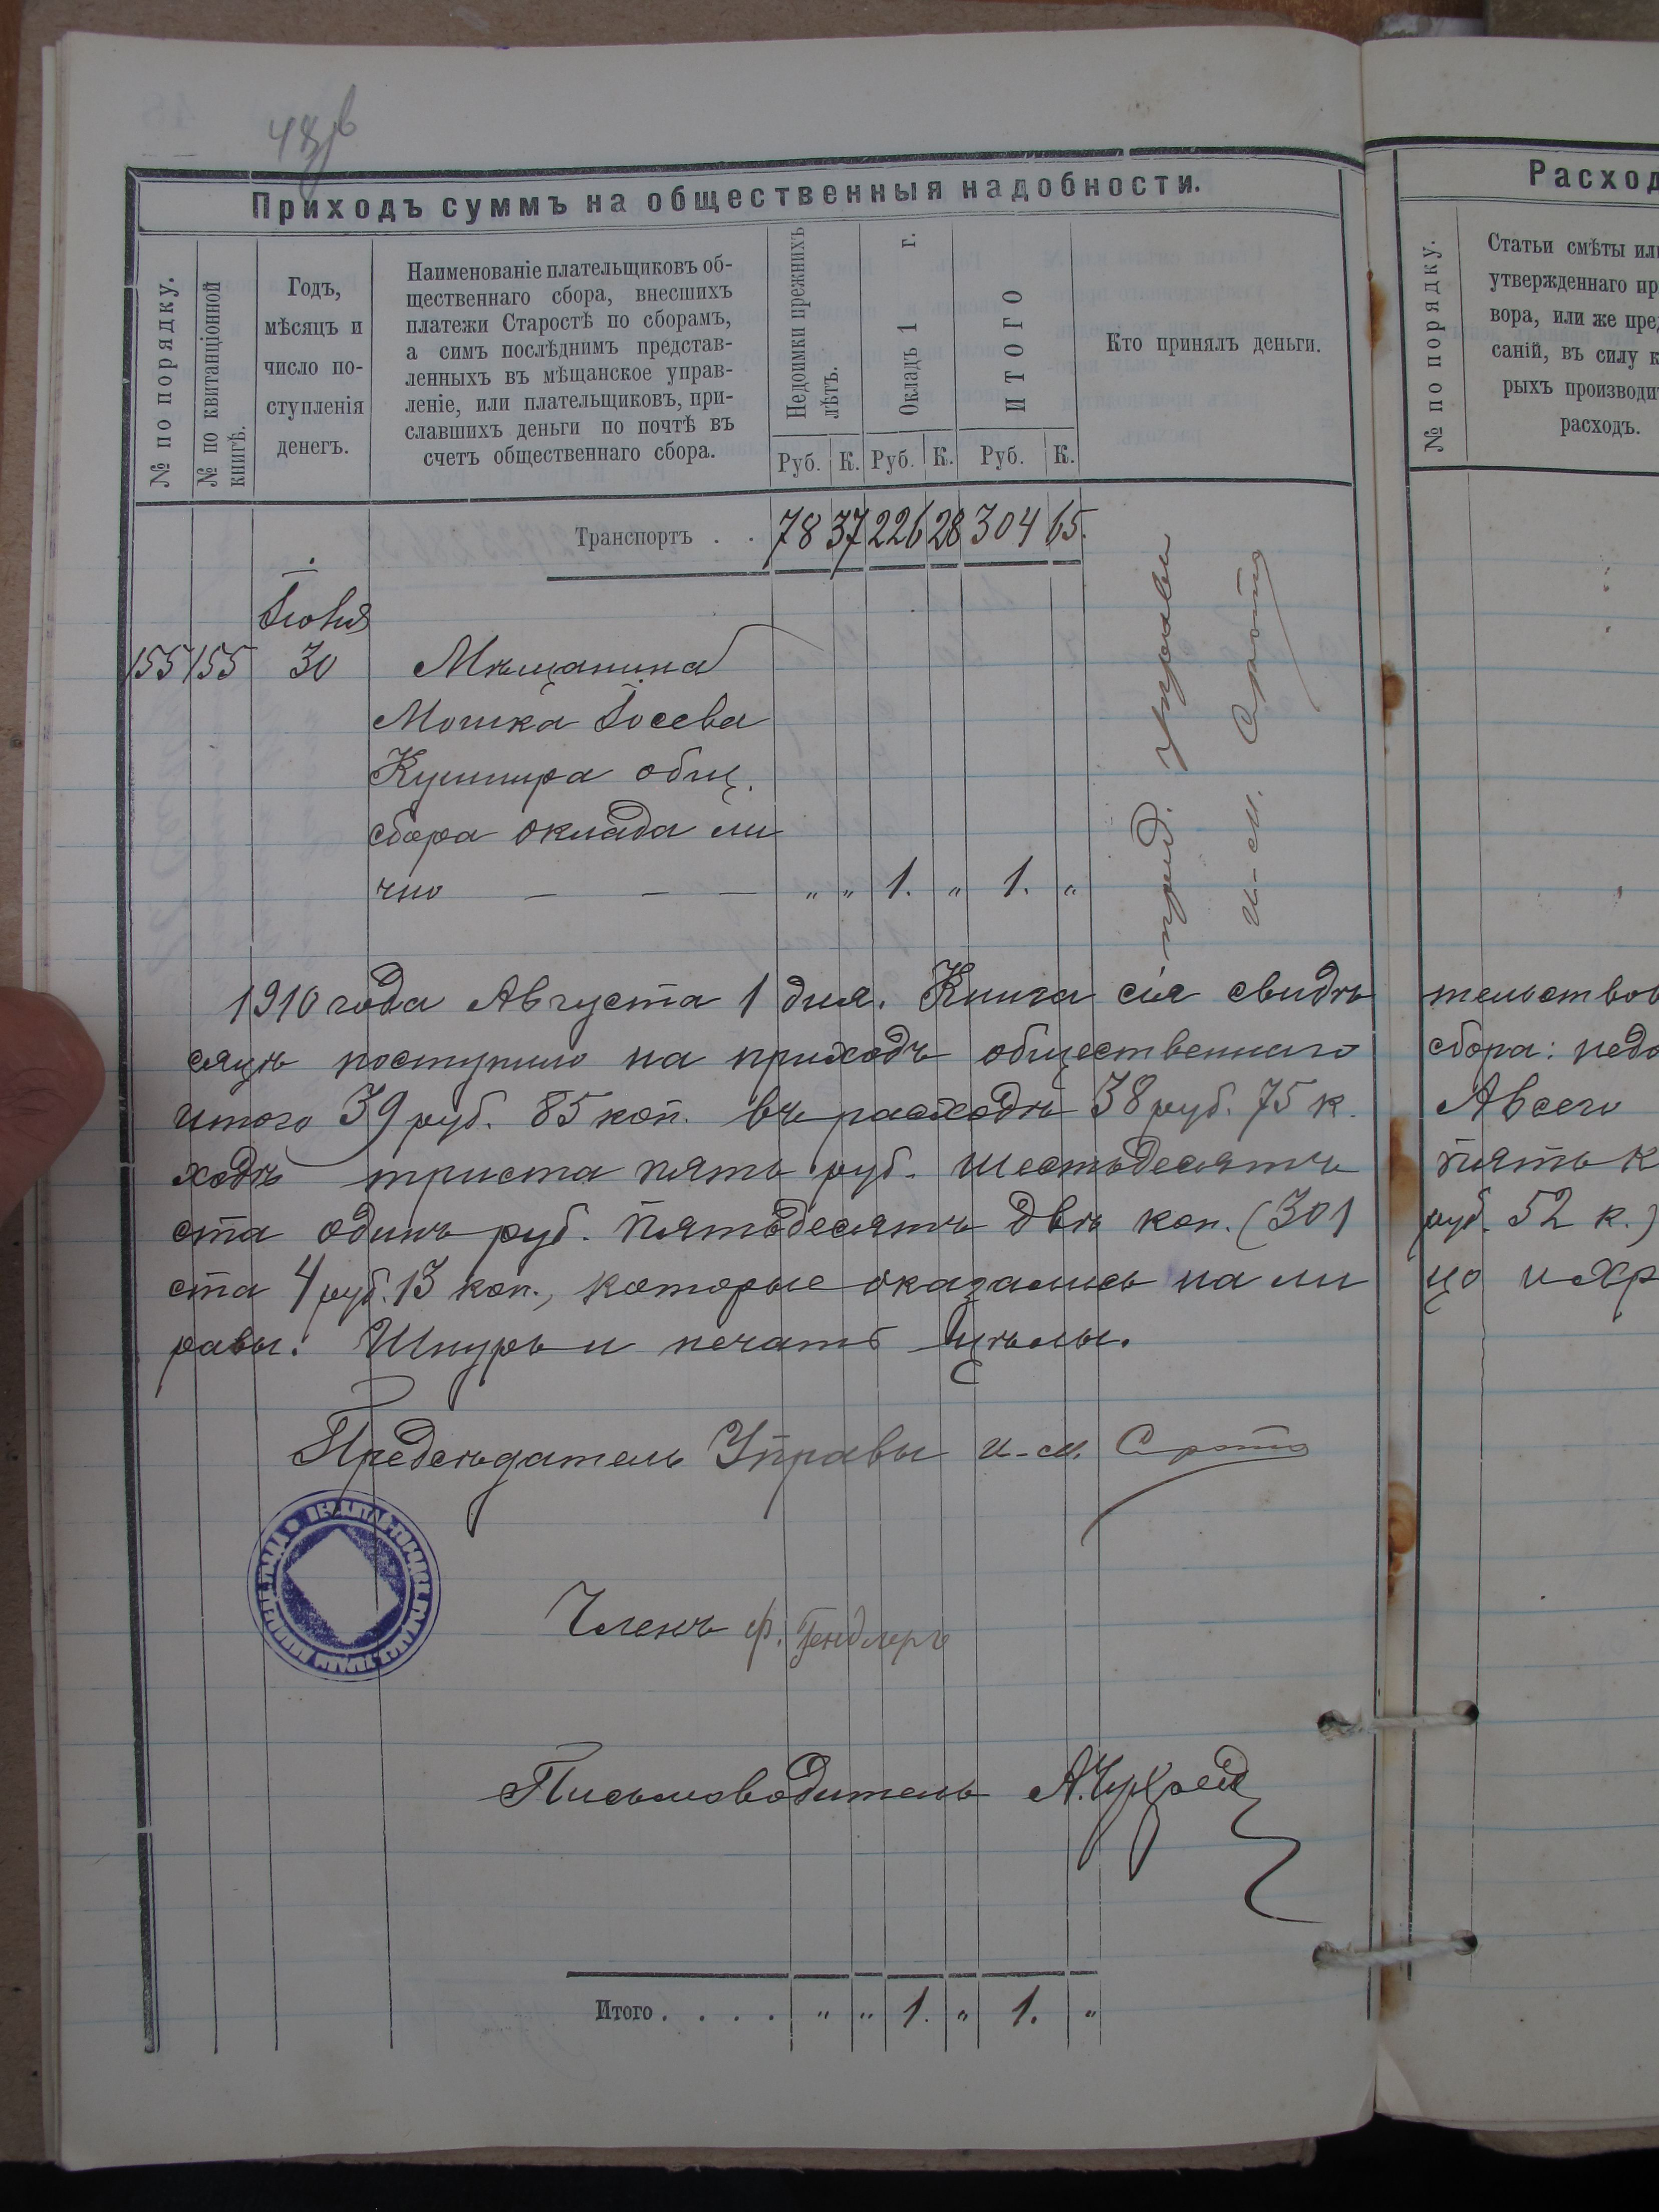 Приходъ суммъ на общественныя надобности.
№ по порядку.
№ по квитанціонной
книгѣ.
Годъ,
мѣсяцъ и
число по-
ступленія
денегъ.
Наименованіе плательщиковъ об-
щественнаго сбора, внесшихъ
платежи Старостѣ по сборамъ,
а симъ послѣднимъ представ-
ленныхъ въ мѣщанское управ-
леніе, или плательщиковъ, при-
славшихъ деньги по почтѣ въ
счетъ общественнаго сбора.
Недоимки прежнихъ
лѣтъ.
Окладъ 1 г.
ИТОГО
Кто принялъ деньги.
Руб. К. Руб. К. Руб. К.
Транспортъ . . 78 37 226 28 304 65.
Іюня
155 155 30 Мѣщанина
Мошка Іосева
Кушнира общ.
сбора оклада ли
чно — — — „ „ 1. „ 1. „
пред. Управы
и-м.
1910 года Августа 1 дня. Книга сія свидѣ
сяцѣ поступило на приходъ общественнаго
итого 39 руб. 85 коп. въ расходѣ 38 руб. 75 к.
ходѣ триста пять руб. шестьдесятъ
ста одинъ руб. пятьдесятъ двѣ коп. (301
ста 4 руб. 13 коп., которые оказались на ли
равы. Шнуръ и печать цѣлы.
Предсѣдатель Управы и-м.
Членъ ф. Гендлеръ
Письмоводитель А.
Итого . . . . „ „ 1. „ 1. „
Расход
№ по порядку.
Статьи смѣты ил
утвержденнаго пр
вора, или же пред
саній, въ силу к
рыхъ производи
расходъ.
тельствов
сбора: недо
А всего
пять к
руб. 52 к.)
цо и хр